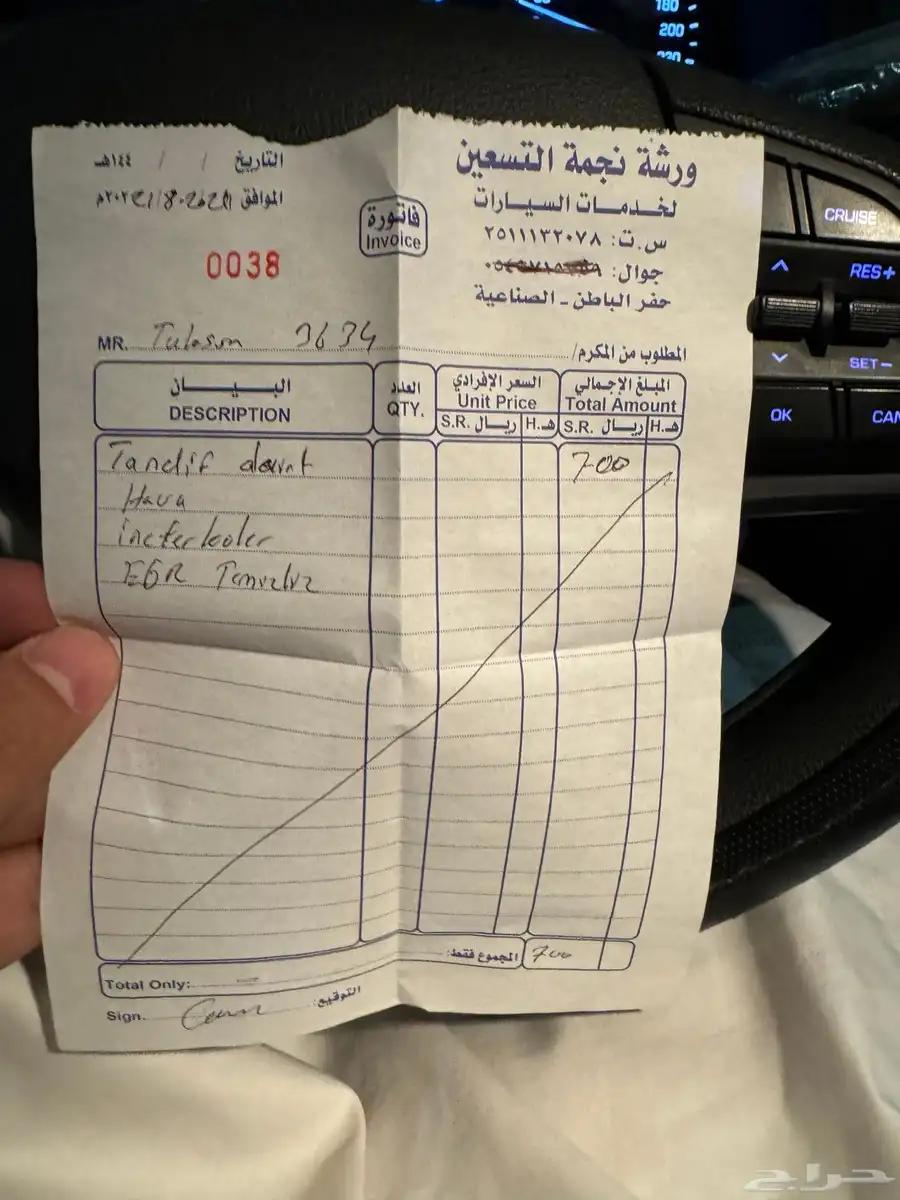 180
200
220
CRUISE
RES+
SET−
OK
CAN
ورشة نجمة التسعين
لخدمات السيارات
س.ت: ٢٥١١١٣٢٠٧٨
جوال:
حفر الباطن - الصناعية
التاريخ / / ١٤٤هـ
الموافق
فاتورة
Invoice
0038
MR. 3634 المطلوب من المكرم/
البيــــان
DESCRIPTION
العدد
QTY.
السعر الإفرادي
Unit Price
S.R. ريال هـ.H
المبلغ الإجمالي
Total Amount
S.R. ريال هـ.H
Tandif 700
Hava
interkooler
EGR
المجموع فقط: 700
Total Only:
Sign. التوقيع:
حراج